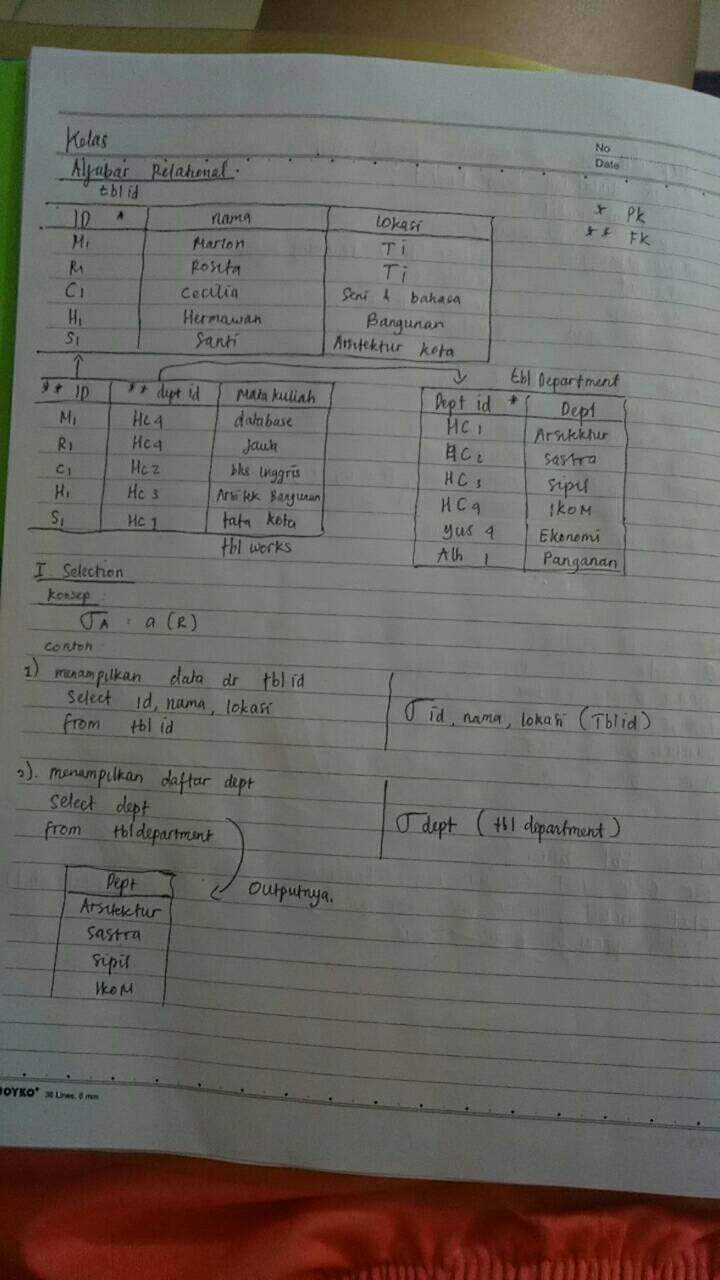 Kelas
No
Date
Aljabar Relational.
tbl id
* PK
** FK
ID * nama lokasi
M1 Marlon Ti
R1 Rosita Ti
C1 Cecilia Seni & bahasa
H1 Hermawan Bangunan
S1 Santi Arsitektur kota
** ID ** dept id Mata kuliah
M1 HC4 database
R1 HC4
C1 HC2 bhs Inggris
H1 HC3 Arsitek Bangunan
S1 HC1 tata kota
tbl works
tbl Department
Dept id * Dept
HC1 Arsitektur
HC2 Sastra
HC3 Sipil
HC4 IKOM
Yus 4 Ekonomi
Alh 1 Panganan
I Selection
Konsep
σA = a (R)
contoh
1) menampilkan data dr tbl id
Select id, nama, lokasi
from tbl id
σ id, nama, lokasi (Tbl id)
2). menampilkan daftar dept
Select dept
from tbl department
σ dept (tbl department)
Outputnya.
Dept
Arsitektur
Sastra
Sipil
IKOM
JOYKO 36 Lines, 6 mm